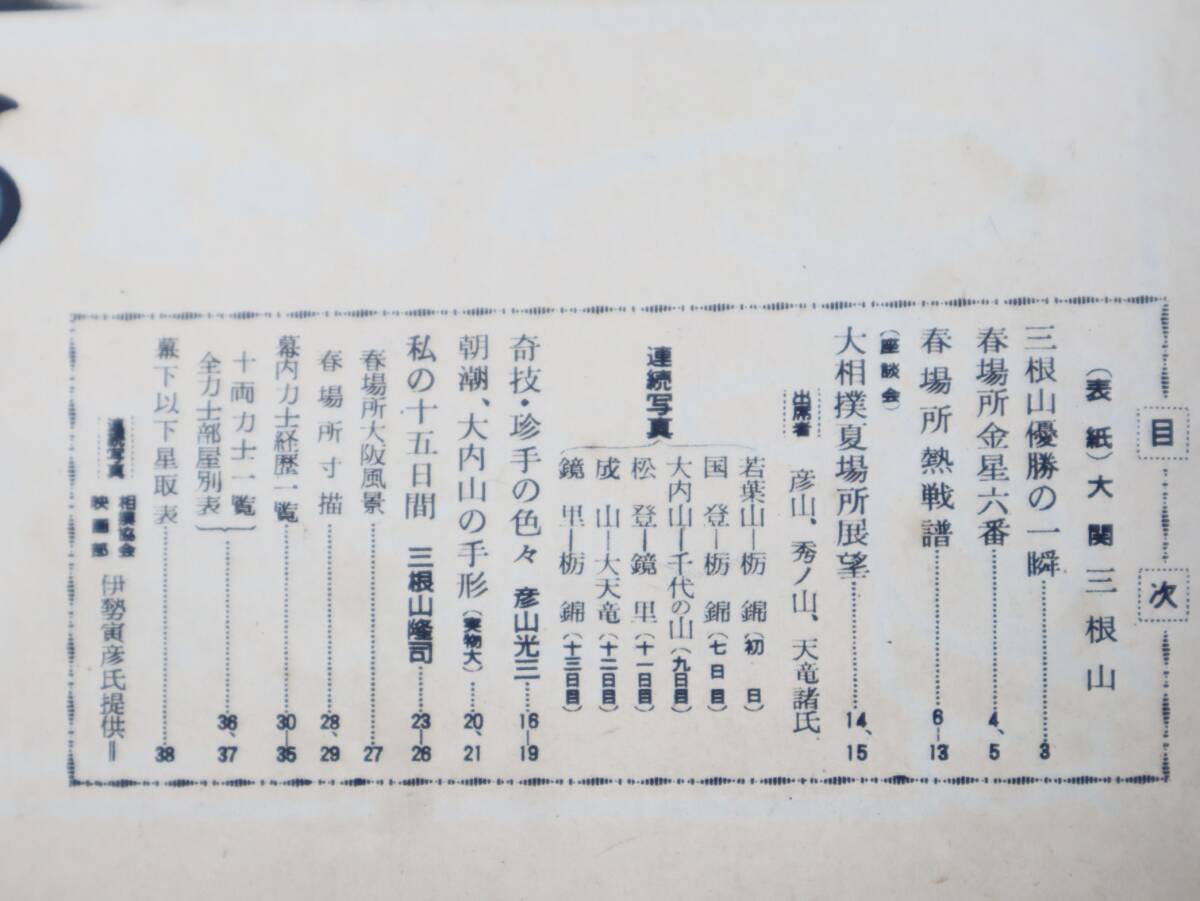 目次
（表紙）大関 三根山
三根山優勝の一瞬……3
春場所金星六番……4、5
春場所熱戦譜……6―13
（座談会）
大相撲夏場所展望……14、15
出席者 彦山、秀ノ山、天竜諸氏
連続写真
若葉山―栃錦（初日）
国登―栃錦（七日目）
大内山―千代の山（九日目）
松登―鏡里（十一日目）
成山―大天竜（十二日目）
鏡里―栃錦（十三日目）
奇技・珍手の色々 彦山光三……16―19
朝潮、大内山の手形（実物大）……20、21
私の十五日間 三根山隆司……23―26
春場所大阪風景……27
春場所寸描……28、29
幕内力士経歴一覧……30―35
十両力士一覧
全力士部屋別表……36、37
幕下以下星取表……38
連続写真 相撲協会映画部 伊勢寅彦氏提供＝